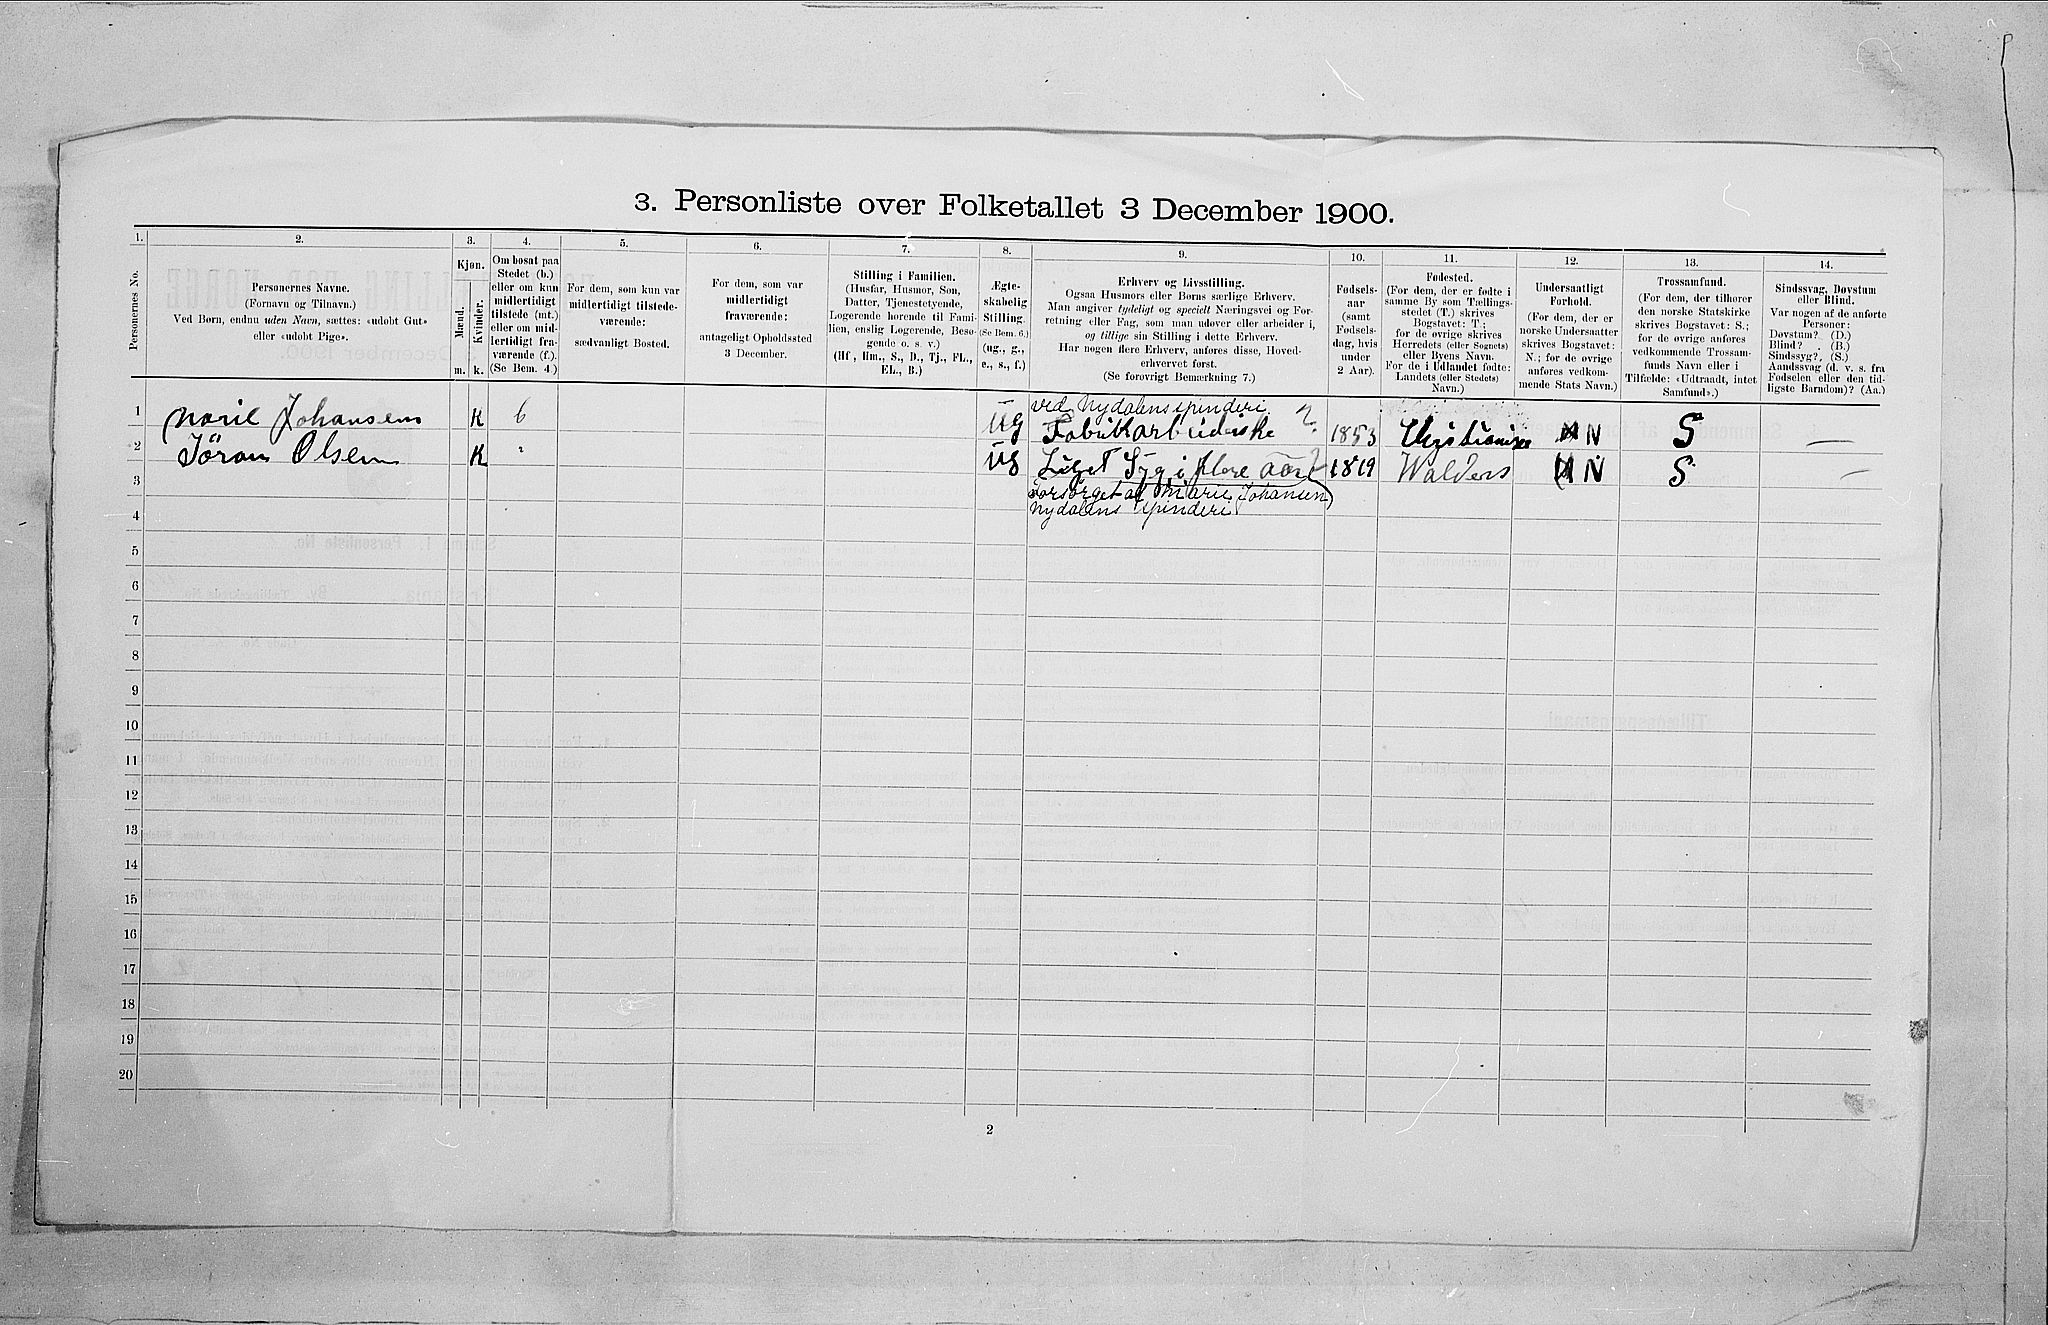 3. Personliste over Folketallet 3 December 1900.
1. 2. 3. 4. 5. 6. 7. 8. 9. 10. 11. 12. 13. 14.
Personernes No.
Personernes Navne.
(Fornavn og Tilnavn.)
Ved Børn, endnu uden Navn, sættes: «udøbt Gut»
eller «udøbt Pige».
Kjøn.
Mænd.
Kvinder.
m. k.
Om bosat paa
Stedet (b.)
eller om kun
midlertidigt
tilstede (mt.)
eller om mid-
lertidigt fra-
værende (f.).
(Se Bem. 4.)
For dem, som kun var
midlertidigt tilstede-
værende:
sædvanligt Bosted.
For dem, som var
midlertidigt
fraværende:
antageligt Opholdssted
3 December.
Stilling i Familien.
(Husfar, Husmor, Søn,
Datter, Tjenestetyende,
Logerende hørende til Fami-
lien, enslig Logerende, Besø-
gende o. s. v.)
(Hf, Hm., S., D., Tj., FL.,
EL., B.)
Ægte-
skabelig
Stilling.
(Se Bem. 6.)
(ug., g.,
e., s., f.)
Erhverv og Livsstilling.
Ogsaa Husmors eller Børns særlige Erhverv.
Man angiver tydeligt og specielt Næringsvei og For-
retning eller Fag, som man udøver eller arbeider i,
og tillige sin Stilling i dette Erhverv.
Har nogen flere Erhverv, anføres disse, Hoved-
erhvervet først.
(Se forøvrigt Bemærkning 7.)
Fødsels-
aar
(samt
Fødsels-
dag, hvis
under
2 Aar).
Fødested.
(For dem, der er fødte i
samme By som Tællings-
stedet (T.) skrives
Bogstavet: T.;
for de øvrige skrives
Herredets (eller Sognets)
eller Byens Navn.
For de i Udlandet fødte:
Landets (eller Stedets)
Navn.)
Undersaatligt
Forhold.
(For dem, der er
norske Undersaatter
skrives Bogstavet:
N.; for de øvrige
anføres vedkom-
mende Stats Navn.)
Trossamfund.
(For dem, der tilhører
den norske Statskirke
skrives Bogstavet: S.;
for de øvrige anføres
vedkommende Trossam-
funds Navn eller i
Tilfælde: «Udtraadt, intet
Samfund».)
Sindssvag, Døvstum
eller Blind.
Var nogen af de anførte
Personer:
Døvstum? (D.)
Blind? (B.)
Sindssyg? (S.)
Aandssvag (d. v. s. fra
Fødselen eller den tid-
ligste Barndom)? (Aa.)
ved Nydalens spinderi
1 Marie Johansen K b Ug Fabrikarbeiderske 1853 N S —
2 Jöran Olsen K " Ug Liget Syg i flere aar 1819 Walders N S —
3 Forsørget af Marie Johansen)
4 Nydalens Spinderi
5
6
7
8
9
10
11
12
13
14
15
16
17
18
19
20
2